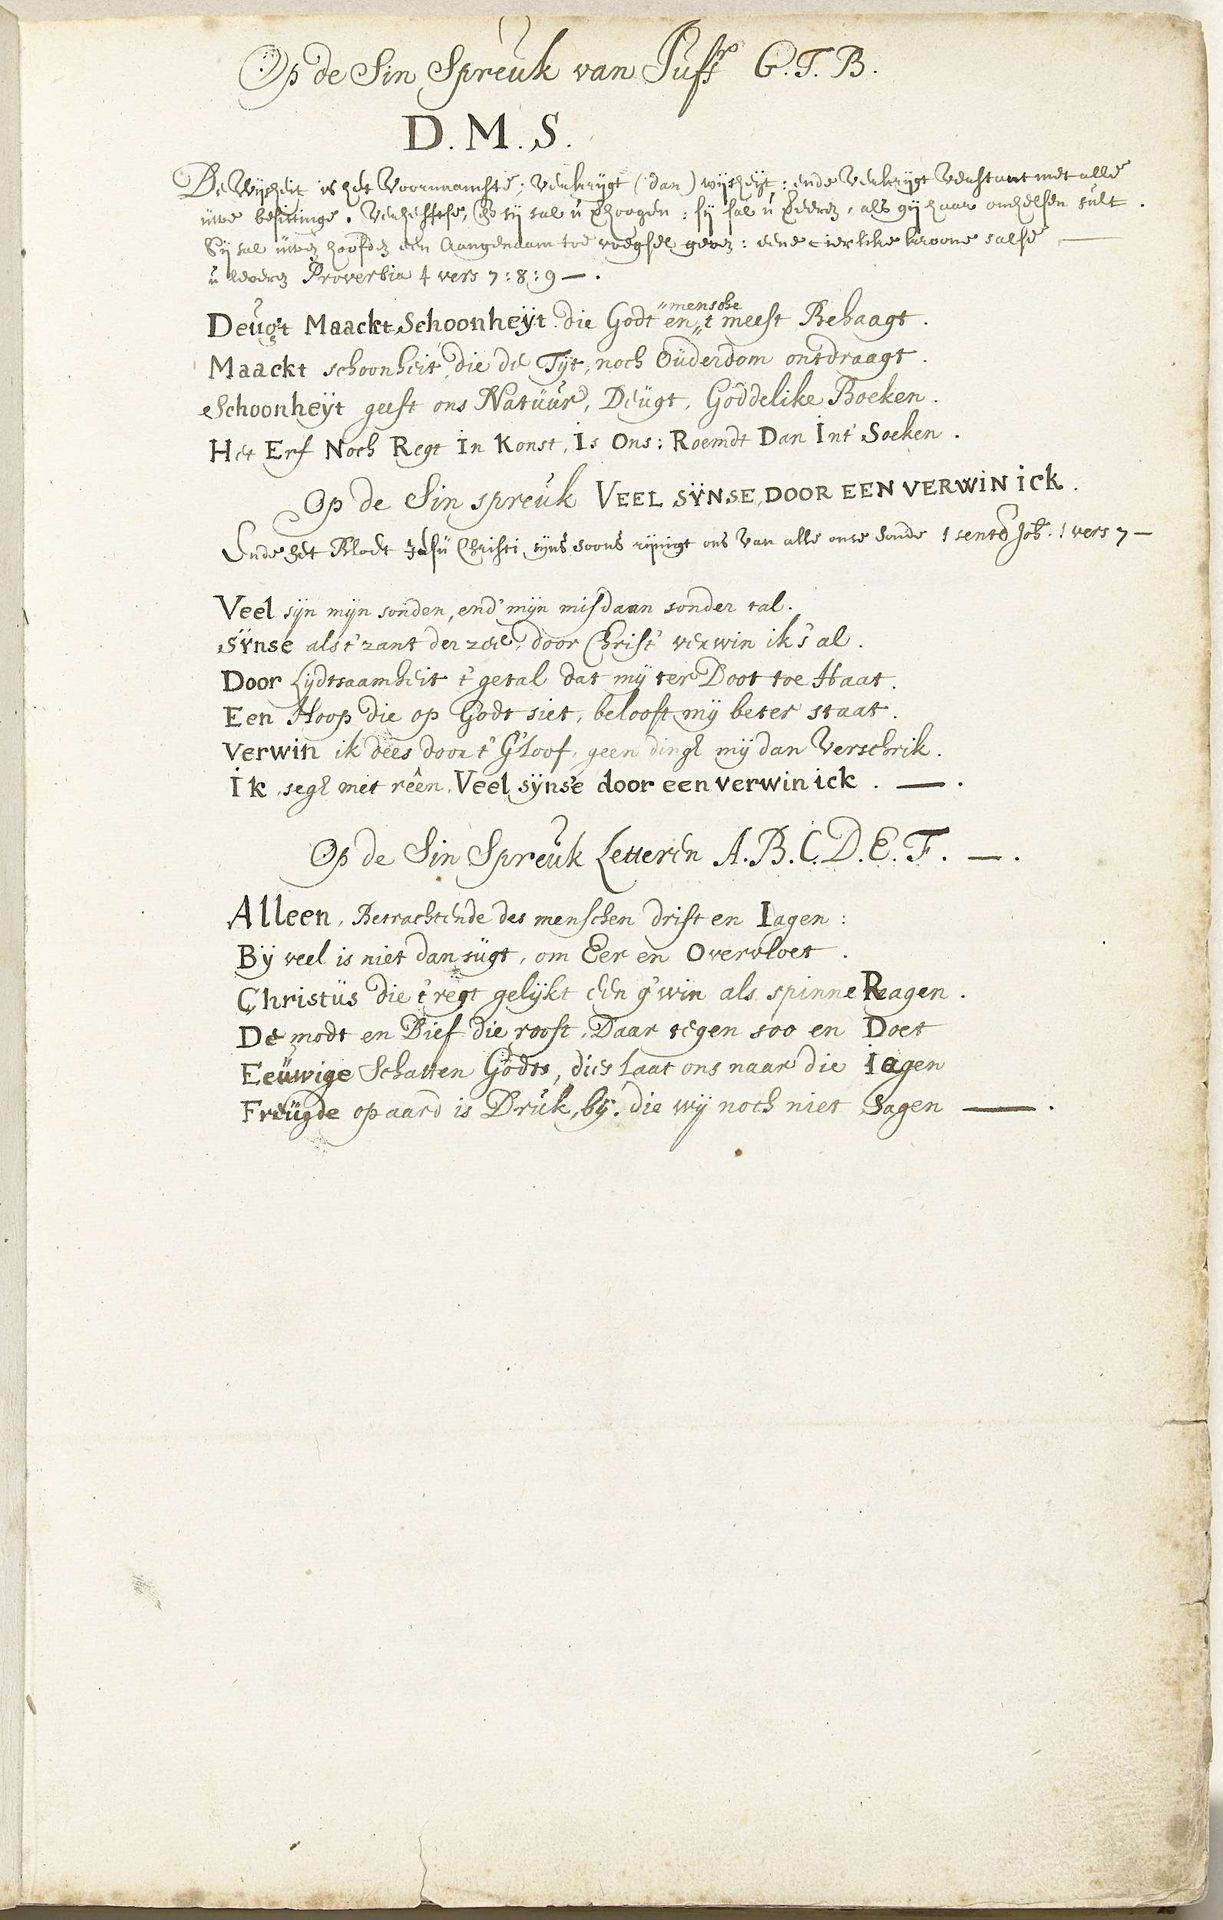 Op de Sin Spreuk van Juffr G. T. B.
D. M. S.
De Wijsheit is het Voornaamste; Verkrijgt (dan) wijsheijt; ende Verkrijgt Verstant met alle
uwe besittinge. Verheftse, & sij sal u Verhoogen: sij sal u Eeren, als gij haar omhelsen sult.
Sij sal uwen hoofden een Aangenaam toe voegsel geven: eene cierlike kroone salse
u leveren Proverbia 4 vers 7:8:9 — .
mensche
Deugt Maackt Schoonheÿt die Godt en 't meest Behaagt.
Maackt schoonheit, die de Tijt, noch Ouderdom ontdraagt.
Schoonheÿt geeft ons Natuur, Deugt, Goddelike Boeken.
Het Erf Noch Regt In Konst, Is Ons: Roemdt Dan Int' Soeken.
Op de Sin spreuk VEEL SŸNSE, DOOR EEN VERWIN ICK.
Ende het Bloet Jesu Christi sijns soons rijnigt ons van alle onse sonde 1 sentb Joh. 1 vers 7 —
Veel sijn mijn sonden, end' mijn misdaan sonder tal.
sÿnse als 't zant der zee, door Christ' verwin ik 's al.
Door Lijdtsaamheit 't getal dat mij ter Doot toe Haat.
Een Hoop die op Godt siet, belooft mij beter staat.
Verwin ik dees door 't G'loof, geen dingh mij dan Verschrik.
Ik segh met reên, Veel sÿnse door een verwin ick. — .
Op de Sin Spreuk Letteren A. B. C. D. E. F. — .
Alleen, Betrachtende des menschen drift en Iagen:
Bÿ veel is niet dan sugt, om Eer en Overvloet.
Christus die 't regt gelijkt een g'win als spinne Ragen.
De modt en Dief die rooft, Daar tegen soo en Doet
Eeuwige Schatten Godts, dies laat ons naar die Iagen
Freugde op aard is Druk, bij die wij noch niet Sagen — .